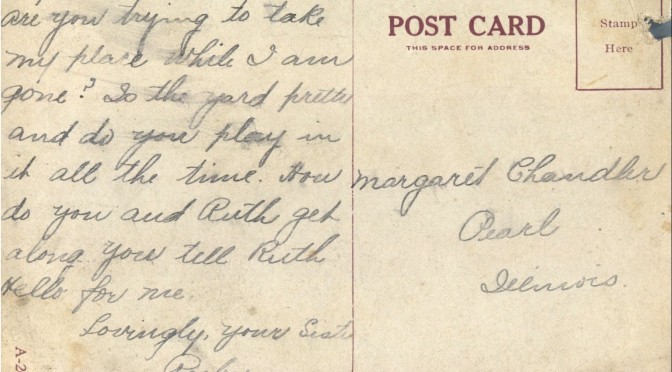 are you trying to take
my place while I am
gone? Is the yard pretty
and do you play in
it all the time. How
do you and Ruth get
along you tell Ruth
Hello for me.
Lovingly, your Sister
POST CARD
THIS SPACE FOR ADDRESS
Stamp
Here
Margaret Chandler
Pearl
Illinois.
A-2